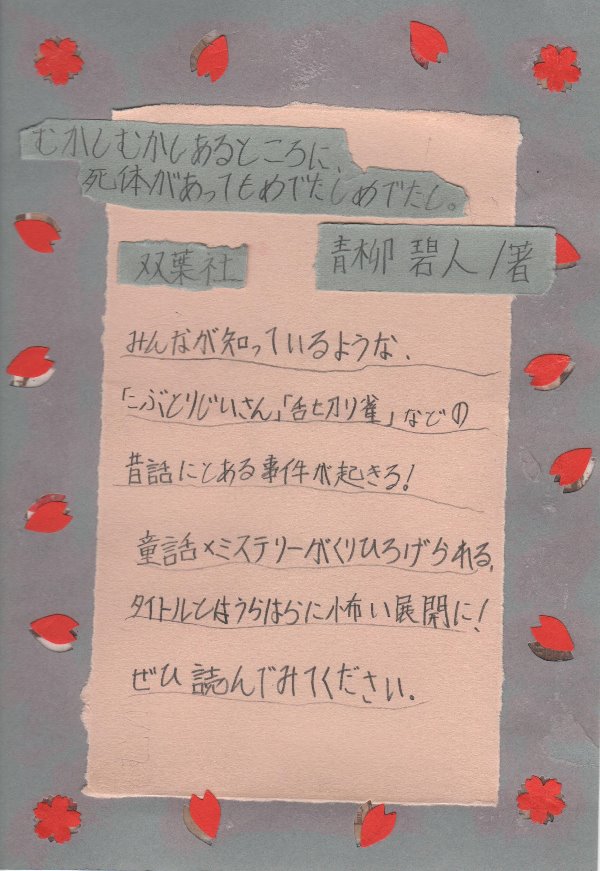 むかしむかしあるところに、
死体があってもめでたしめでたし。
双葉社
青柳 碧人/著
みんなが知っているような、
「こぶとりじいさん」「舌切り雀」などの
昔話にとある事件が起きる！
童話×ミステリーがくりひろげられる、
タイトルとはうらはらに怖い展開に！
ぜひ読んでみてください。